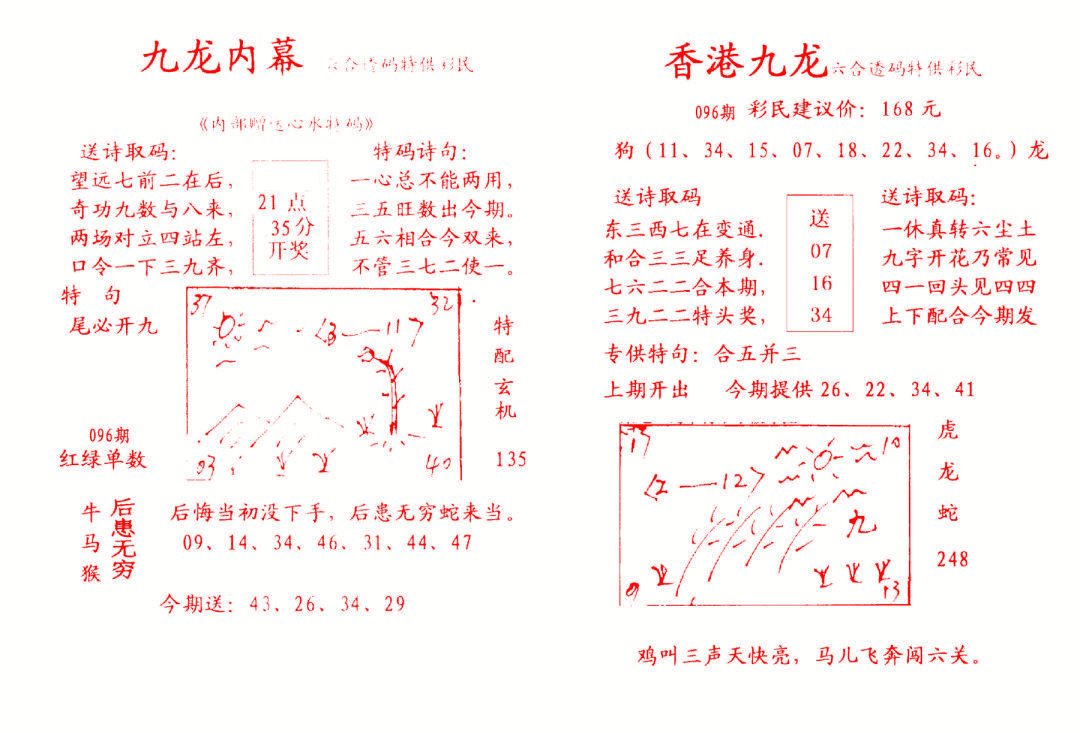 九龙内幕 六合透码特供彩民
《内部赠送心水特码》
送诗取码：
望远七前二在后，
奇功九数与八来，
两场对立四站左，
口令一下三九齐，
21点
35分
开奖
特码诗句：
一心总不能两用，
三五旺数出今期。
五六相合今双来，
不管三七二使一。
特 句
尾必开九
37
32
13—117
03
40
特
配
玄
机
135
096期
红绿单数
牛
马
猴
后患无穷
后悔当初没下手，后患无穷蛇来当。
09、14、34、46、31、44、47
今期送：43、26、34、29
香港九龙 六合透码特供彩民
096期 彩民建议价：168元
狗（11、34、15、07、18、22、34、16。）龙
送诗取码
东三西七在变通．
和合三三足养身．
七六二二合本期，
三九二二特头奖，
送
07
16
34
送诗取码：
一休真转六尘土
九字开花乃常见
四一回头见四四
上下配合今期发
专供特句：合五并三
上期开出 今期提供26、22、34、41
10
九
09
13
虎
龙
蛇
248
鸡叫三声天快亮，马儿飞奔闯六关。